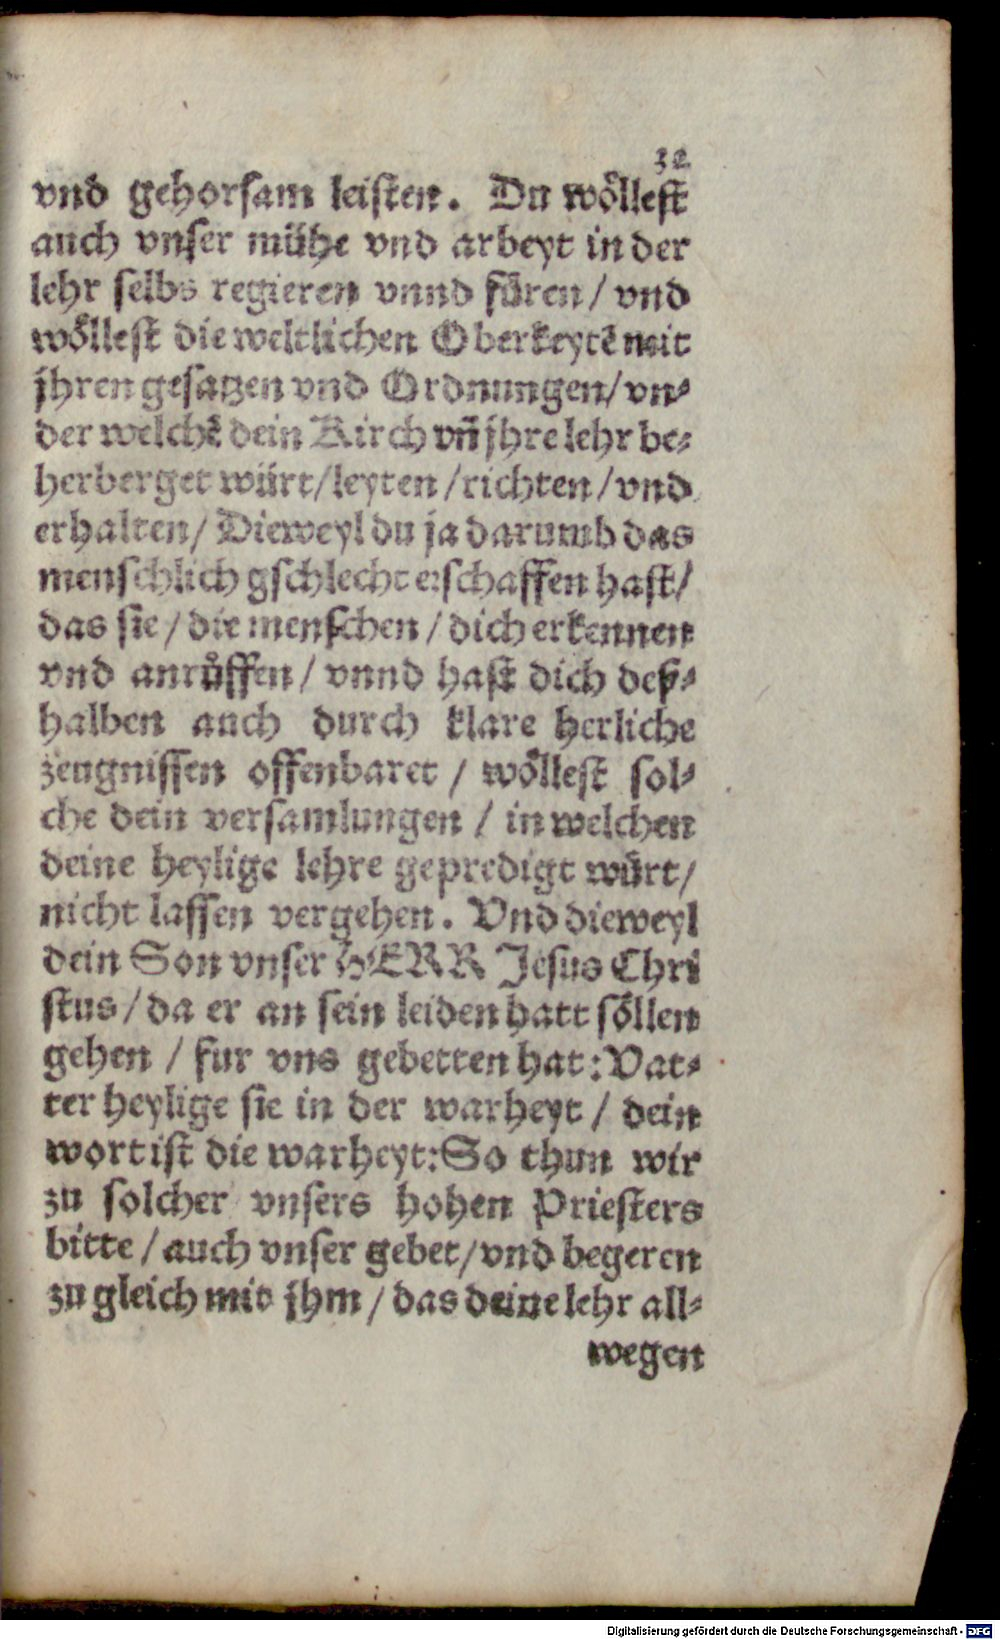 32
vnd gehorsam leisten. Du wöllest
auch vnser mühe vnd arbeyt in der
lehr selbs regieren vnnd füren / vnd
wöllest die weltlichen Oberkeytē mit
jhren gesatzen vnd Ordnungen/ vn⸗
der welchē dein Kirch vn̄ jhre lehr be⸗
herberget würt/ leyten / richten / vnd
erhalten / Dieweyl du ja darumb das
menschlich gschlecht erschaffen hast/
das sie / die menschen / dich erkennen
vnd anrůffen / vnnd hast dich deß⸗
halben auch durch klare herliche
zeugnissen offenbaret / wöllest sol⸗
che dein versamlungen / in welchen
deine heylige lehre gepredigt würt/
nicht lassen vergehen. Vnd dieweyl
dein Son vnser HERR Jesus Chri
stus / da er an sein leiden hatt söllen
gehen / fur vns gebetten hat: Vat⸗
ter heylige sie in der warheyt / dein
wort ist die warheyt: So thun wir
zu solcher vnsers hohen Priesters
bitte / auch vnser gebet/ vnd begeren
zu gleich mit jhm / das deine lehr all⸗
wegen
Digitalisierung gefördert durch die Deutsche Forschungsgemeinschaft - DFG